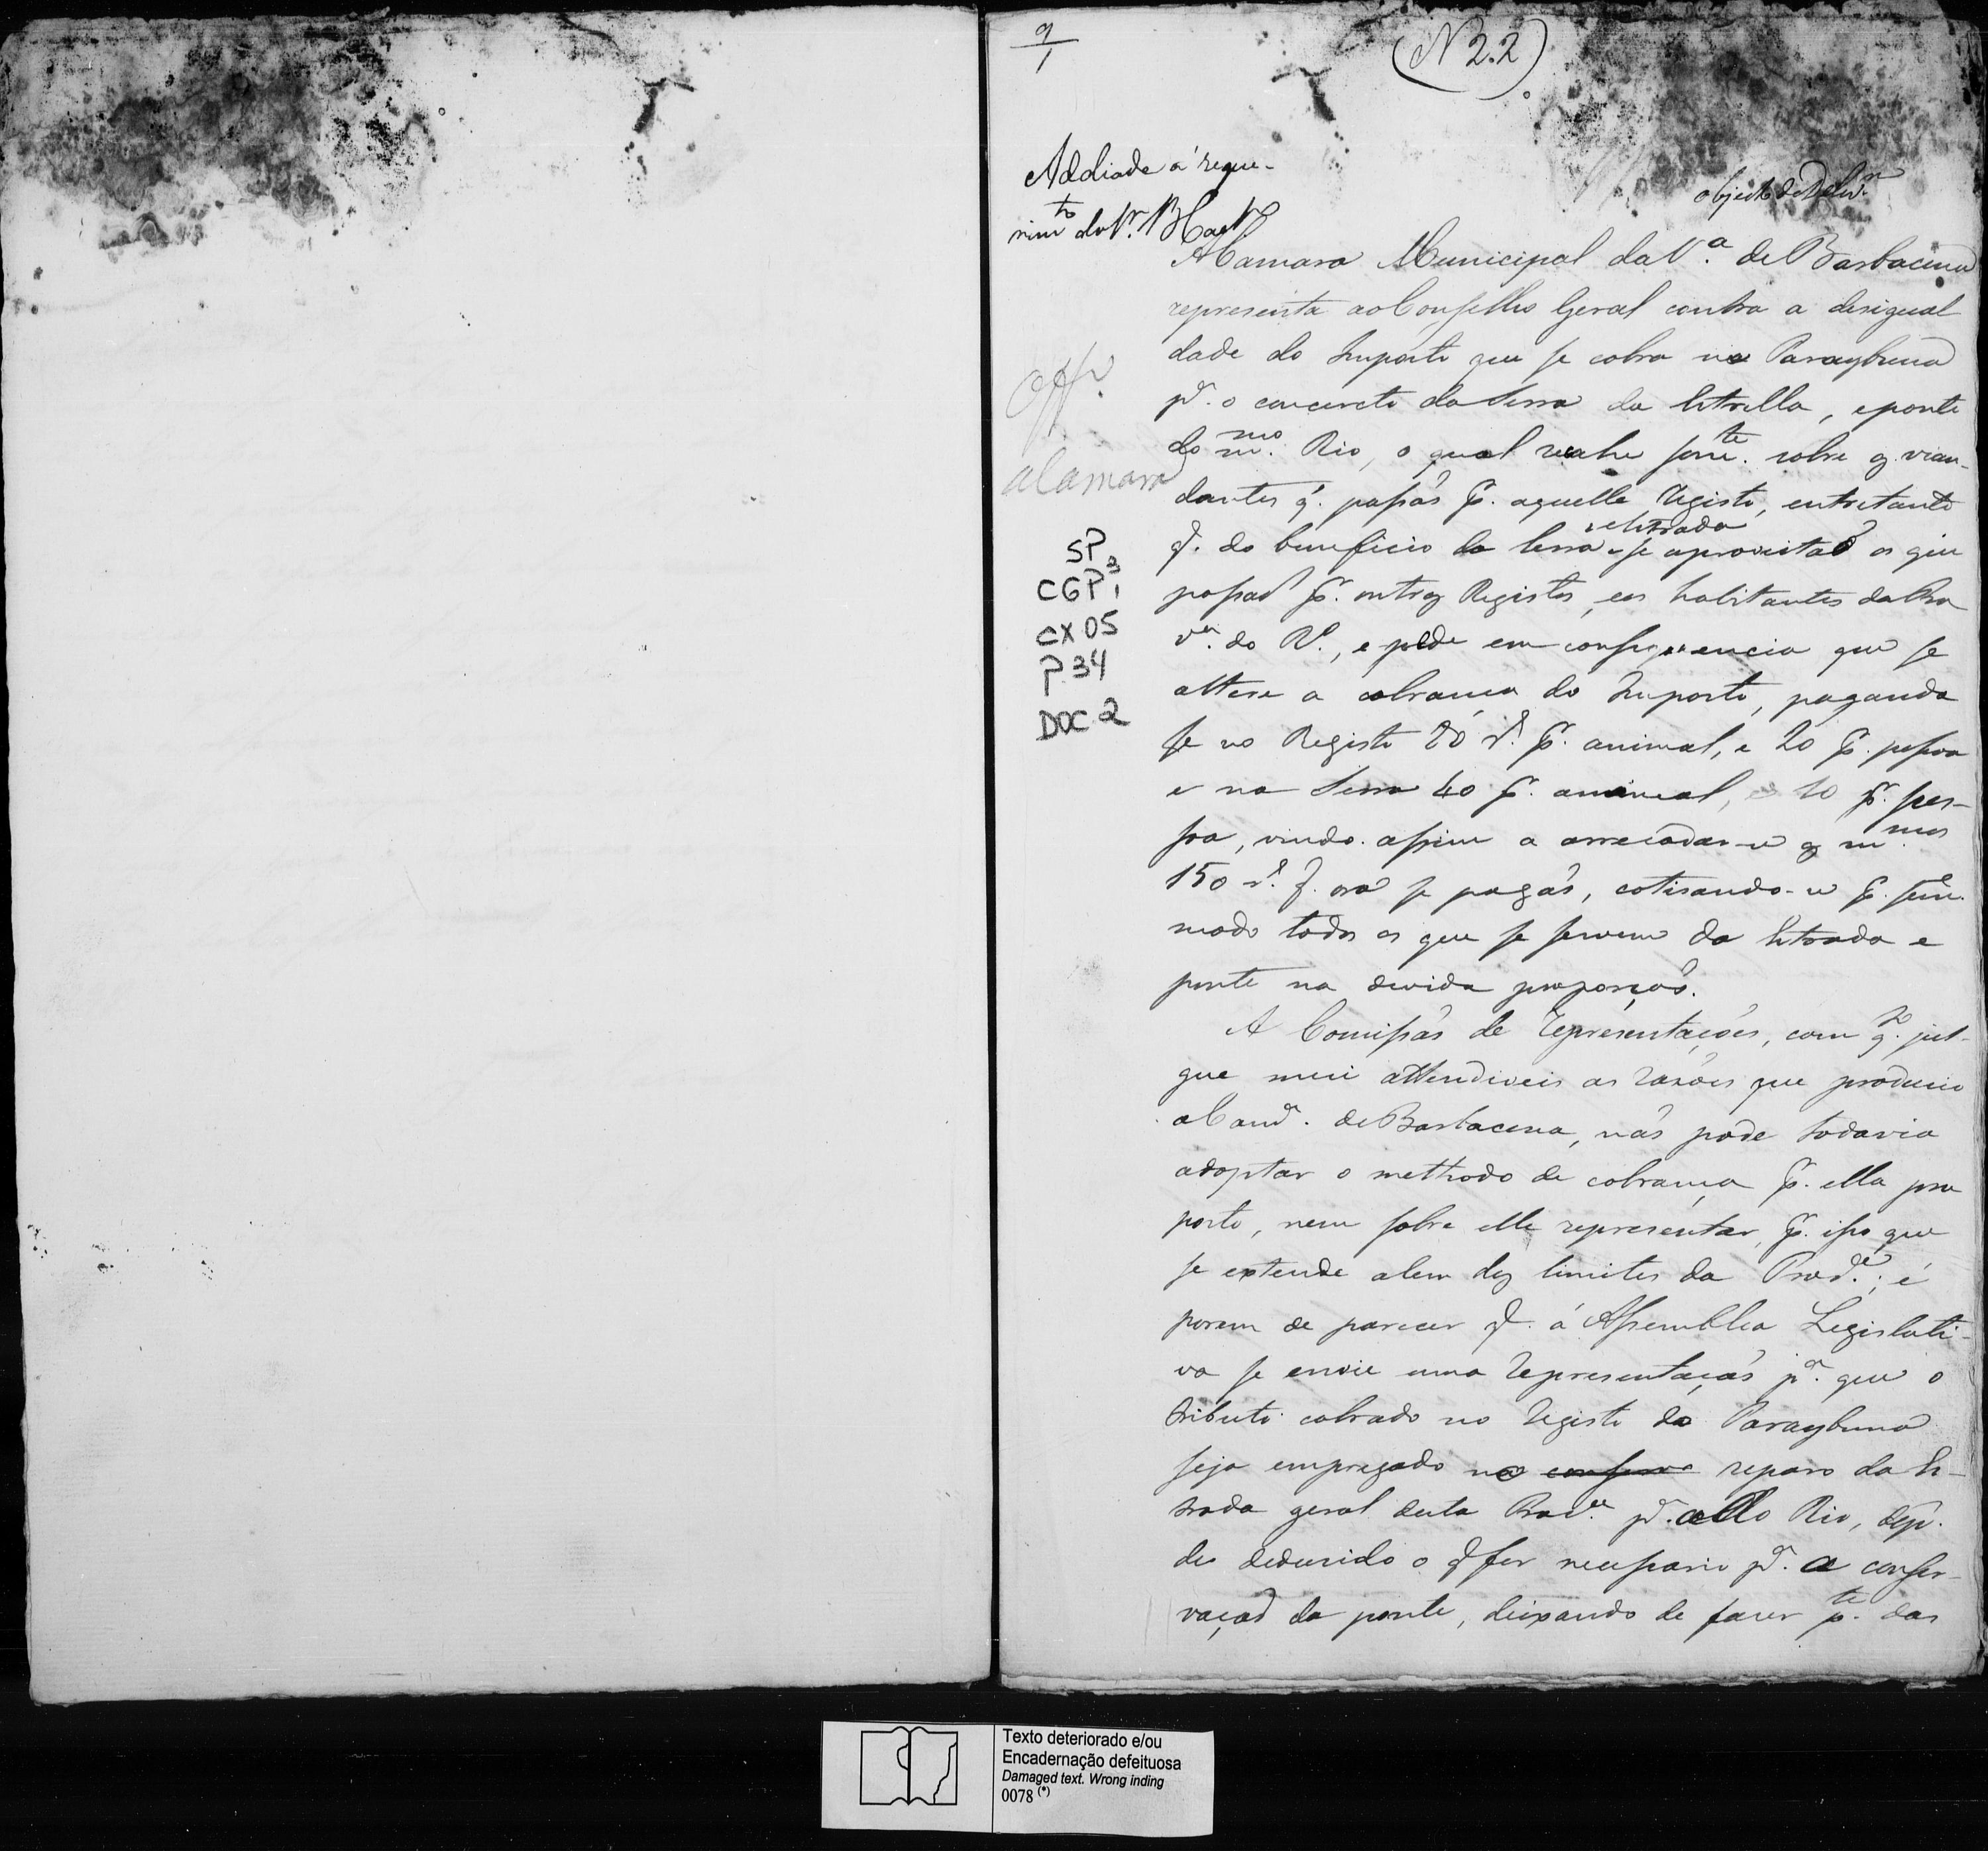 9/1
(N 2.2)
Addiada á reque-
rim.to do Sr.
objecto de Delib.m
A Camara Municipal da V.a de Barbacena
representa ao Conselho Geral contra a desigual
dade do Imposto que se cobra no Paraybuna
p.a o concerto da Serra da Estrella, e ponte
do m.mo Rio, o qual recahe som.te sobre os vian-
dantes q. passaõ p.r aquelle Registo, entretanto
q. do beneficio da Serra e Estrada se aproveitaõ os que
passaõ p.r outros Registos, e os habitantes da Pro
v.a do R.o, e pede em consequencia que se
altere a cobrança do Imposto, pagando
se no Registo 80 r.s p.r animal, e 20 p.r pessoa
e na Serra 40 p.r animal, e 10 p.r pes-
soa, vindo assim a arrecadar-se os m.mos
150 r.s q. ora se pagaõ, cotisando-se p.r sem.e
modo todos os que se servem da Estrada e
ponte na devida proporçaõ.
A Comissaõ de Representações, com q.to jul-
gue mui attendiveis as razões que produzio
a Cam.a de Barbacena, naõ póde todavia
adoptar o methodo de cobrança p.r ella pro
posto, nem sobre elle representar, p.r isso que
se extende alem dos limites da Prov.a; é
porem de parecer q. á Assemblea Legislati-
va se envie uma Representaçaõ p.a que o
tributo cobrado no Registo do Paraybuna
seja empregado no reparo da Es-
trada geral desta Prov.a p.a a do Rio, dep.s
de dedusido o q. for necessario p.a a conser-
vaçaõ da ponte, deixando de fazer p.te das
Off.
a Camara
SP
CGP 3/1
CX 05
P. 34
DOC. 2
Texto deteriorado e/ou
Encadernação defeituosa
Damaged text. Wrong inding
0078 (*)